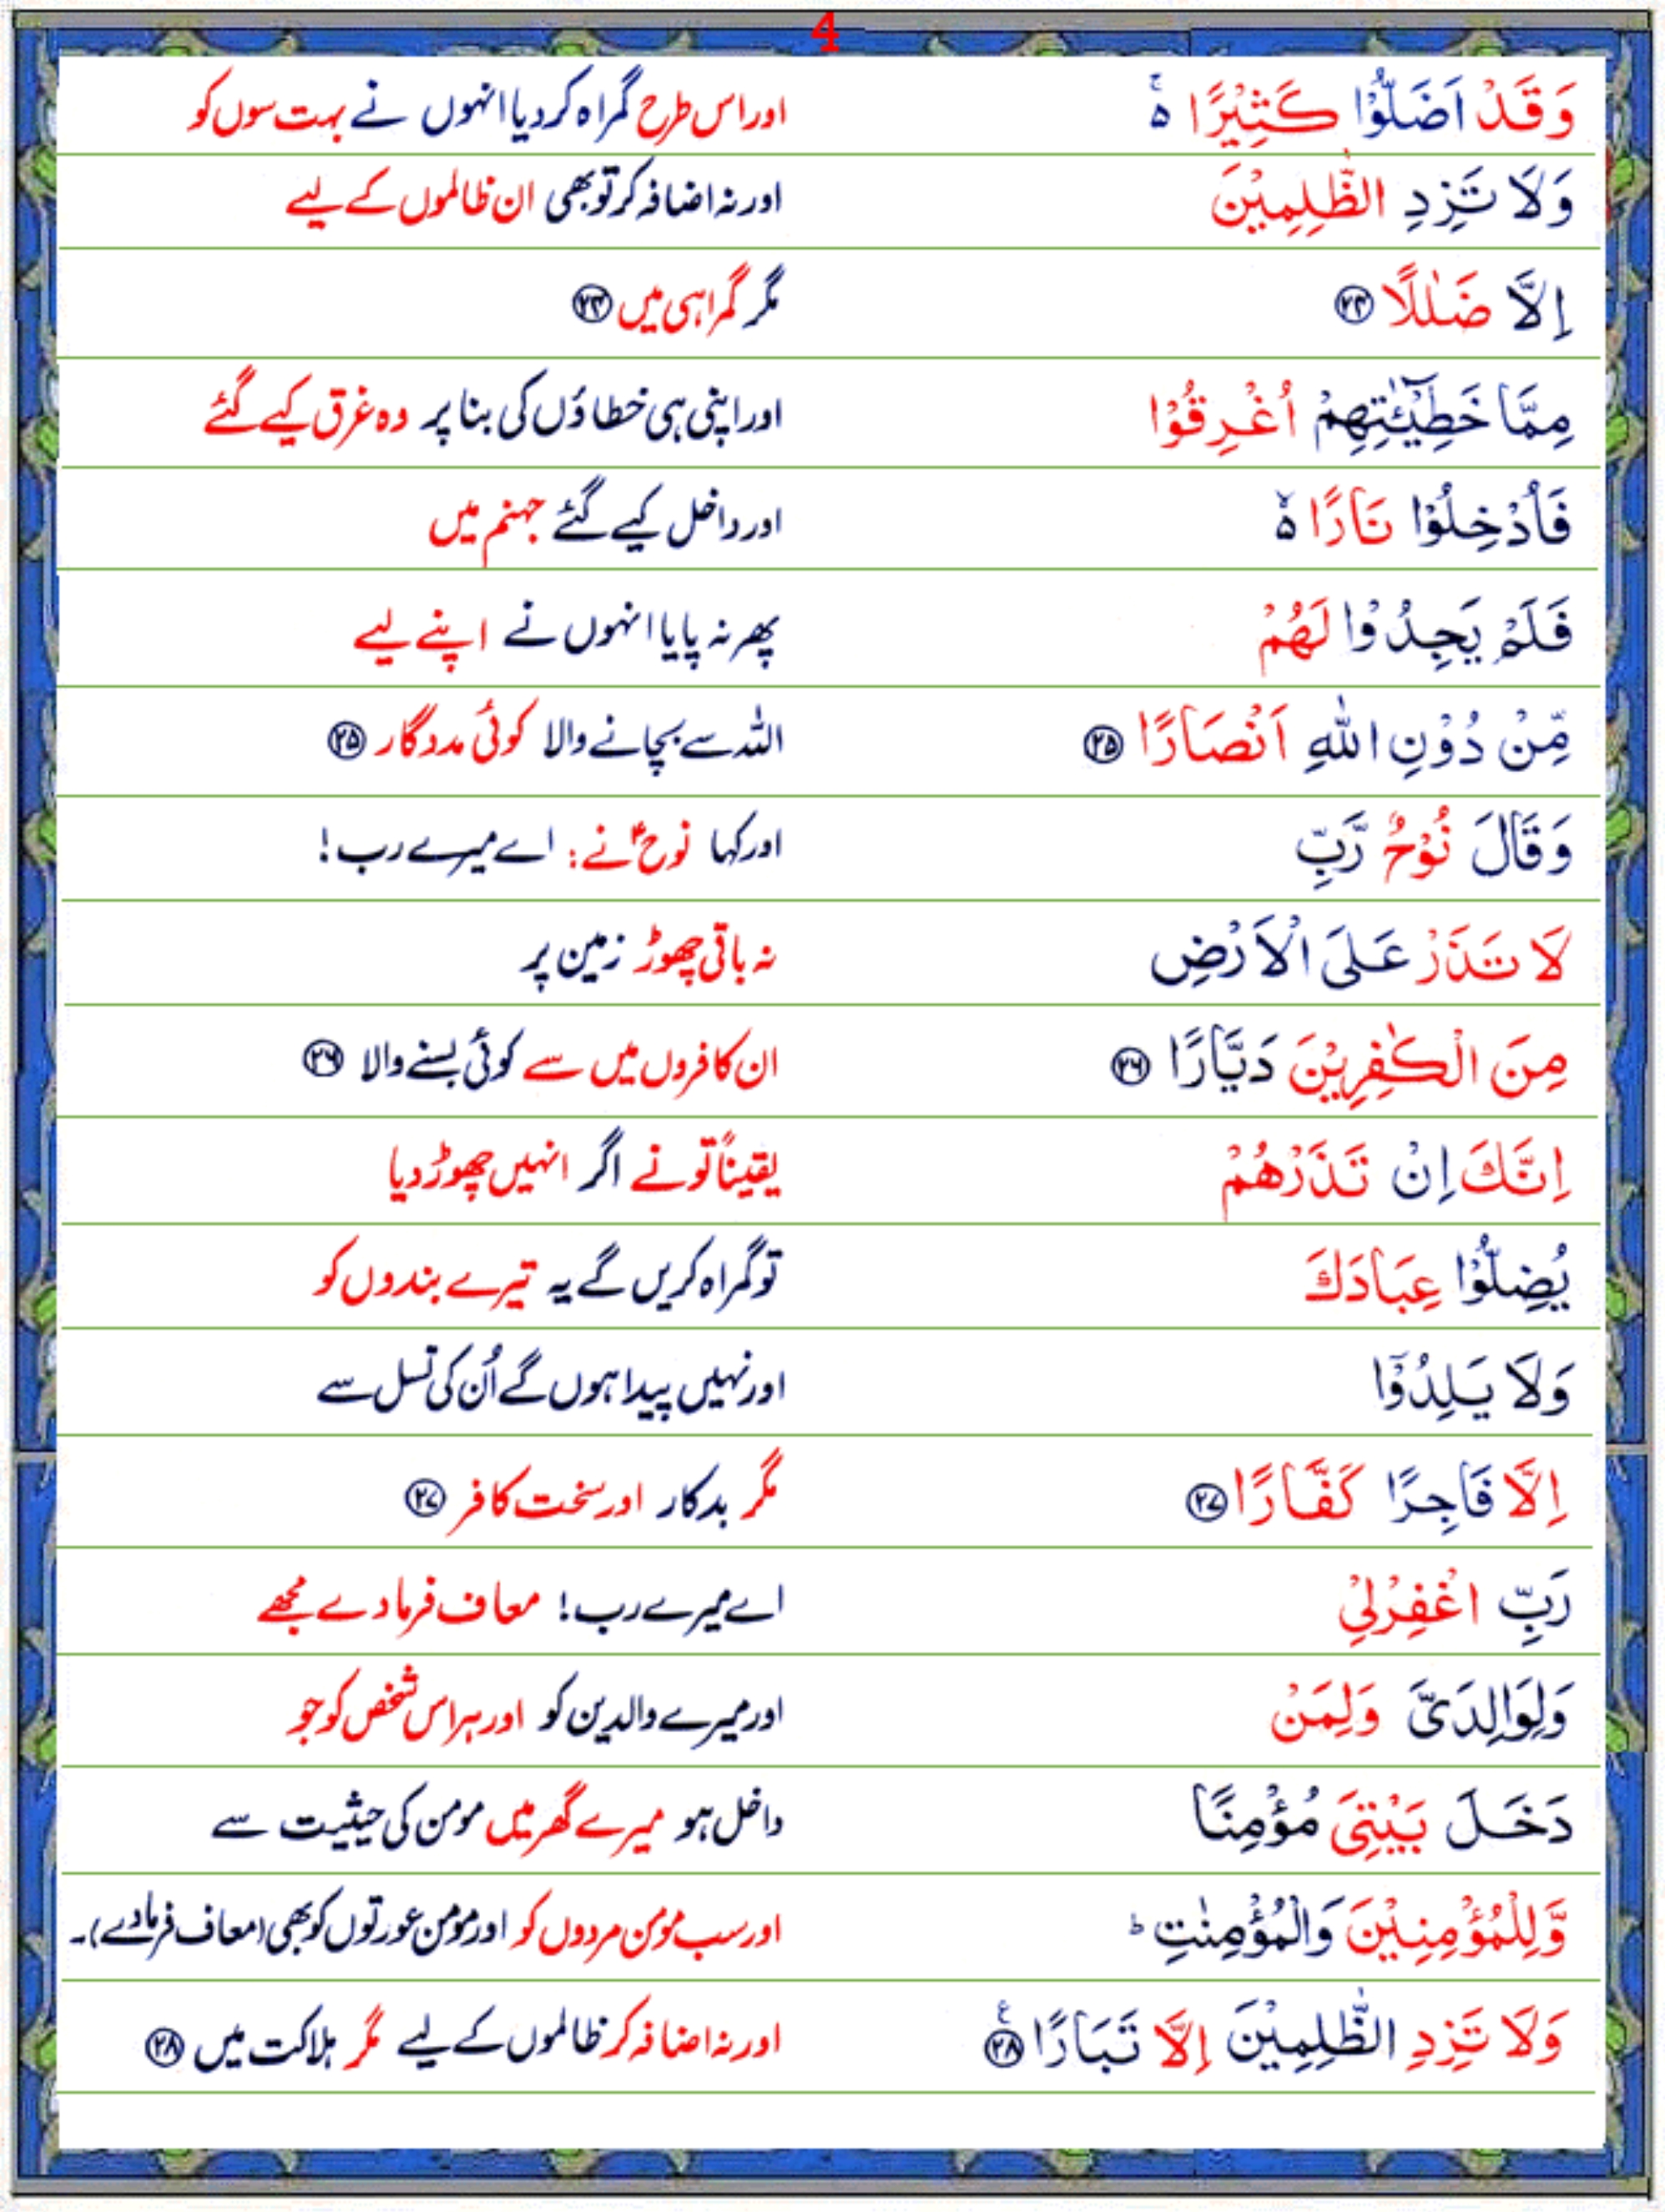 4
وَقَدْ اَضَلُّوْا كَثِيْرًا ۵ۚ اور اس طرح گمراہ کر دیا انہوں نے بہت سوں کو
وَلَا تَزِدِ الظّٰلِمِيْنَ اور نہ اضافہ کر تو بھی ان ظالموں کے لیے
اِلَّا ضَلٰلًا ۲۴ مگر گمراہی میں ۲۴
مِمَّا خَطِيْٓـٰٔتِهِمْ اُغْرِقُوْا اور اپنی ہی خطاؤں کی بنا پر وہ غرق کیے گئے
فَاُدْخِلُوْا نَارًا ۵ۙ اور داخل کیے گئے جہنم میں
فَلَمْ يَجِدُوْا لَهُمْ پھر نہ پایا انہوں نے اپنے لیے
مِّنْ دُوْنِ اللّٰهِ اَنْصَارًا ۲۵ اللہ سے بچانے والا کوئی مددگار ۲۵
وَقَالَ نُوْحٌ رَّبِّ اور کہا نوحؑ نے: اے میرے رب!
لَا تَذَرْ عَلَى الْاَرْضِ نہ باقی چھوڑ زمین پر
مِنَ الْكٰفِرِيْنَ دَيَّارًا ۲۶ ان کافروں میں سے کوئی بسنے والا ۲۶
اِنَّكَ اِنْ تَذَرْهُمْ یقیناً تو نے اگر انہیں چھوڑ دیا
يُضِلُّوْا عِبَادَكَ تو گمراہ کریں گے یہ تیرے بندوں کو
وَلَا يَلِدُوْٓا اور نہیں پیدا ہوں گے اُن کی نسل سے
اِلَّا فَاجِرًا كَفَّارًا ۲۷ مگر بدکار اور سخت کافر ۲۷
رَبِّ اغْفِرْلِيْ اے میرے رب! معاف فرما دے مجھے
وَلِوَالِدَيَّ وَلِمَنْ اور میرے والدین کو اور ہر اس شخص کو جو
دَخَلَ بَيْتِيَ مُؤْمِنًا داخل ہو میرے گھر میں مومن کی حیثیت سے
وَّلِلْمُؤْمِنِيْنَ وَالْمُؤْمِنٰتِ ؕ اور سب مومن مردوں کو اور مومن عورتوں کو بھی (معاف فرمادے)۔
وَلَا تَزِدِ الظّٰلِمِيْنَ اِلَّا تَبَارًا ۲۸ۧ اور نہ اضافہ کر ظالموں کے لیے مگر ہلاکت میں ۲۸